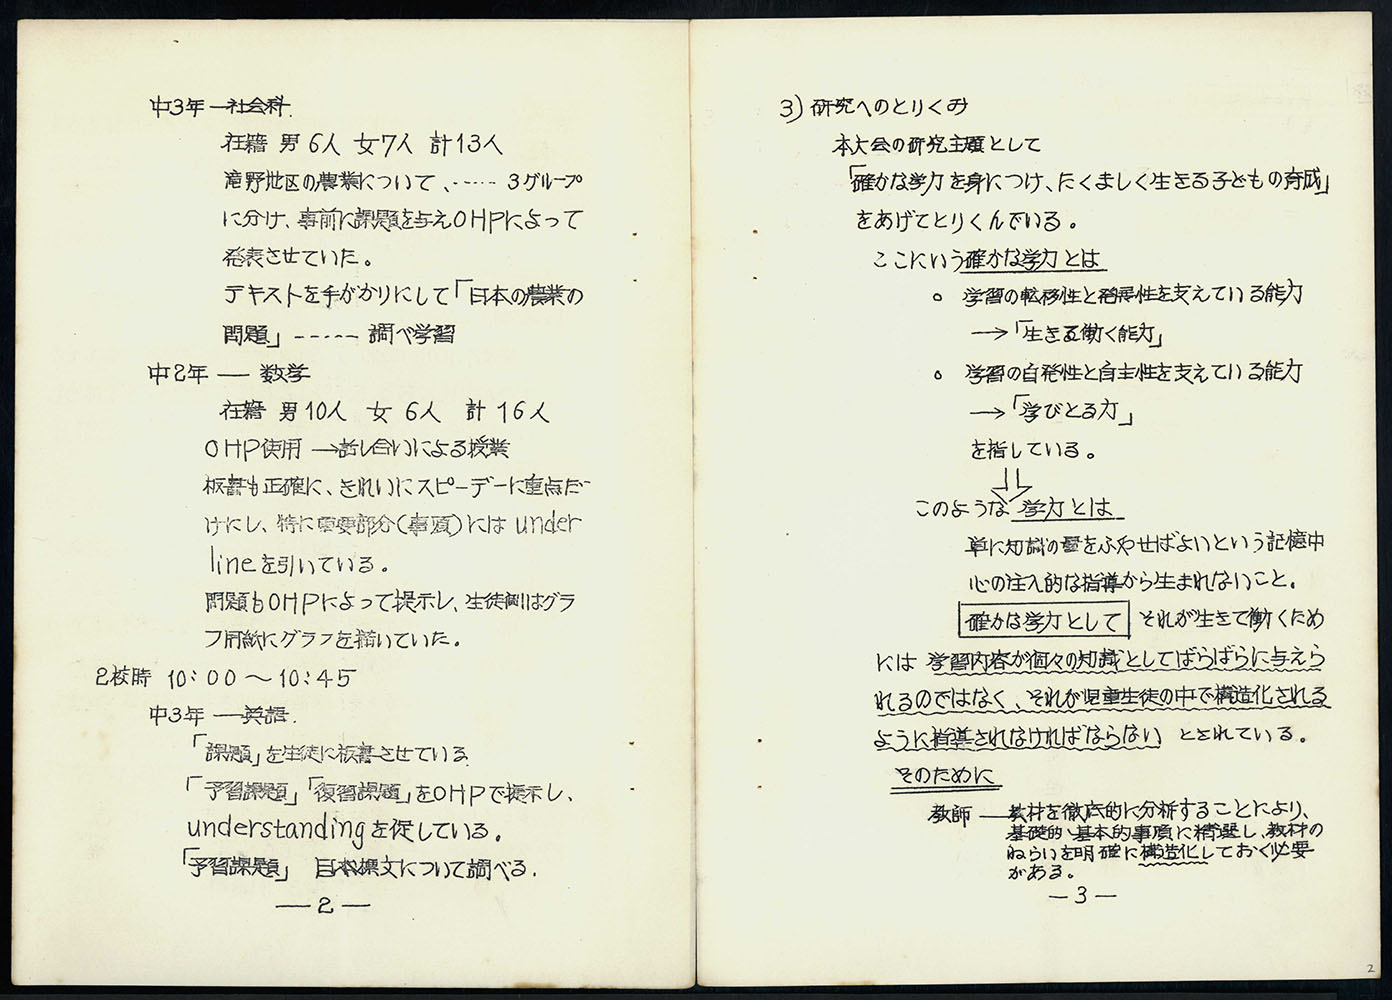 中3年 — 社会科.
在籍 男 6人 女7人 計13人
滝野地区の農業について、…… 3グループ
に分け、事前に課題を与えOHPによって
発表させていた。
テキストを手がかりにして「日本の農業の
問題」 ------ 調べ学習
中2年 — 数学
在籍 男10人 女 6人 計 16人
OHP使用 → 話し合いによる授業
板書も正確に、きれいにスピーデーに重点だ
けにし、特に重要部分(事項)には under
lineを引いている。
問題もOHPによって提示し、生徒側はグラ
フ用紙にグラフを描いていた。
2校時 10:00 〜 10:45
中3年 — 英語.
「課題」を生徒に板書させている
「予習課題」「復習課題」をOHPで提示し、
understandingを促している。
「予習課題」 日本標文について調べる.
— 2 —
3) 研究へのとりくみ
本大会の研究主題として
「確かな学力を身につけ、たくましく生きる子どもの育成」
をあげてとりくんでいる。
ここにいう確かな学力とは
○ 学習の転移性と発展性を支えている能力
→「生きる働く能力」
○ 学習の自発性と自主性を支えている能力
→「学びとる力」
を指している。
このような学力とは
単に知識の量をふやせばよいという記憶中
心の注入的な指導から生まれないこと。
確かな学力として それが生きて働くため
には 学習内容が個々の知識としてばらばらに与えら
れるのではなく、それが児童生徒の中で構造化される
ように指導されなければならない とされている。
そのために
教師 — 教材を徹底的に分析することにより、
基礎的、基本的事項に精選し、教材の
ねらいを明確に構造化しておく必要
がある。
— 3 —
2